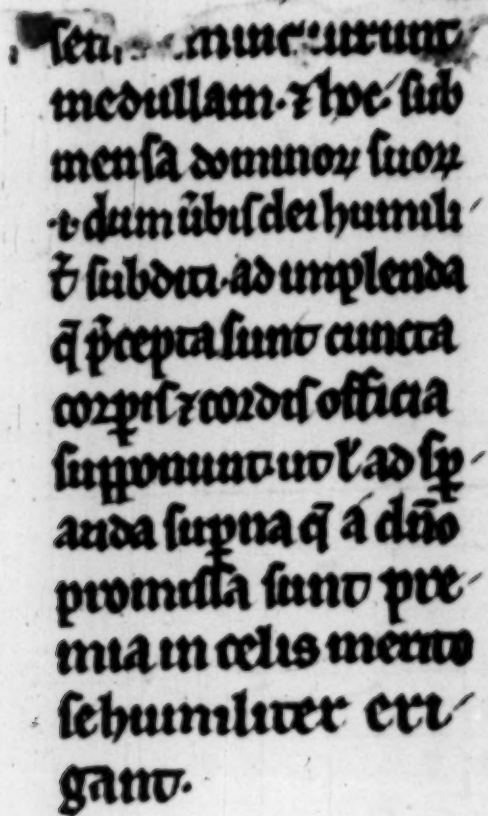 medullam. ⁊ hoc sub
mensa dominoꝝ suoꝝ
.i. dum ũbis dei humili
t̃ subditi. ad implenda
q̄ p̃cepta sunt cuncta
corꝑis ⁊ cordis officia
supponunt. ut ł ad sꝑ
anda suꝑna q̄ a dño
promissa sunt pre
mia in celis merito
se humiliter eri
gant.